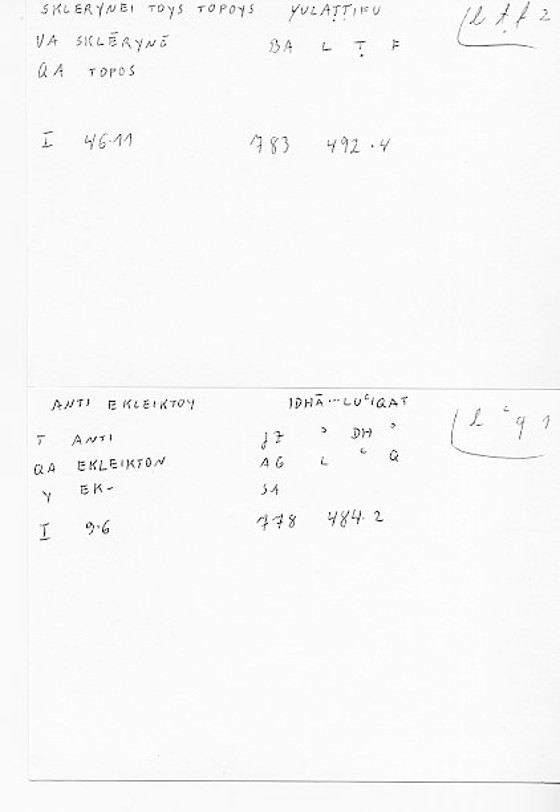 SKLERYNEI TOYS TOPOYS YULAṬṬIFU (l ṭ f 2
VA SKLĒRYNĒ BA L Ṭ F
QA TOPOS
I 46.11 783 492.4
ANTI EKLEIKTOY IDHĀ...LUʿIQAT (l ʿ q 1
T ANTI JZ ʾ DH ʾ
QA EKLEIKTON AG L ʿ Q
Y EK- SA
I 9.6 778 484.2